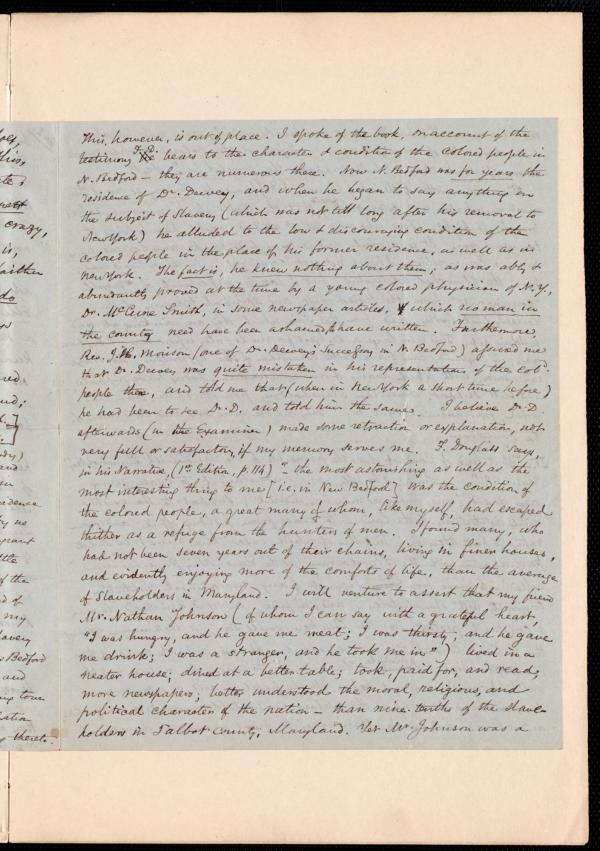 This, however, is out of place. I spoke of the book, on account of the
F. D.
testimony he bears to the character & condition of the colored people in
N. Bedford — they are numerous there. Now N. Bedford was for years the
residence of Dr. Dewey, and when he began to say anything on
the subject of Slavery (which was not till long after his removal to
New York) he alluded to the low & discouraging condition of the
colored people in the place of his former residence, as well as in
New York. The fact is, he knew nothing about them, as was ably &
abundantly proved at the time by a young colored physician of N. Y,
Dr. McCune Smith, in some newspaper articles, which no man in
the country need have been ashamed to have written. Furthermore,
Rev. J. H. Morison (one of Dr. Dewey's Successors, in N. Bedford) assured me
that Dr. Dewey was quite mistaken in his representation of the cold.
people there, and told me that (when in New York a short time before)
he had been to see Dr. D. and told him the same. I believe Dr. D
afterwards (in the Examiner) made some retraction or explanation, not
very full or satisfactory, if my memory serves me. F. Douglass says,
in his Narrative, (1st Edition, p. 114) "— the most astonishing as well as the
most interesting thing to me [i.e. in New Bedford] was the condition of
the colored people, a great many of whom, like myself, had escaped
thither as a refuge from the hunters of men. I found many, who
had not been seven years out of their chains, living in finer houses,
and evidently enjoying more of the comforts of life, than the average
of Slaveholders in Maryland. I will venture to assert that my friend
Mr. Nathan Johnson (of whom I can say with a grateful heart,
"I was hungry, and he gave me meat; I was thirsty, and he gave
me drink; I was a stranger, and he took me in") lived in a
neater house; dined at a better table; took, paid for, and read,
more newspapers; better understood the moral, religious, and
political character of the nation — than nine tenths of the slave-
holders in Talbot County, Maryland. Yet Mr. Johnson was a
crazy,
is,
do
and
of the
my
Bedford
and
thereto.